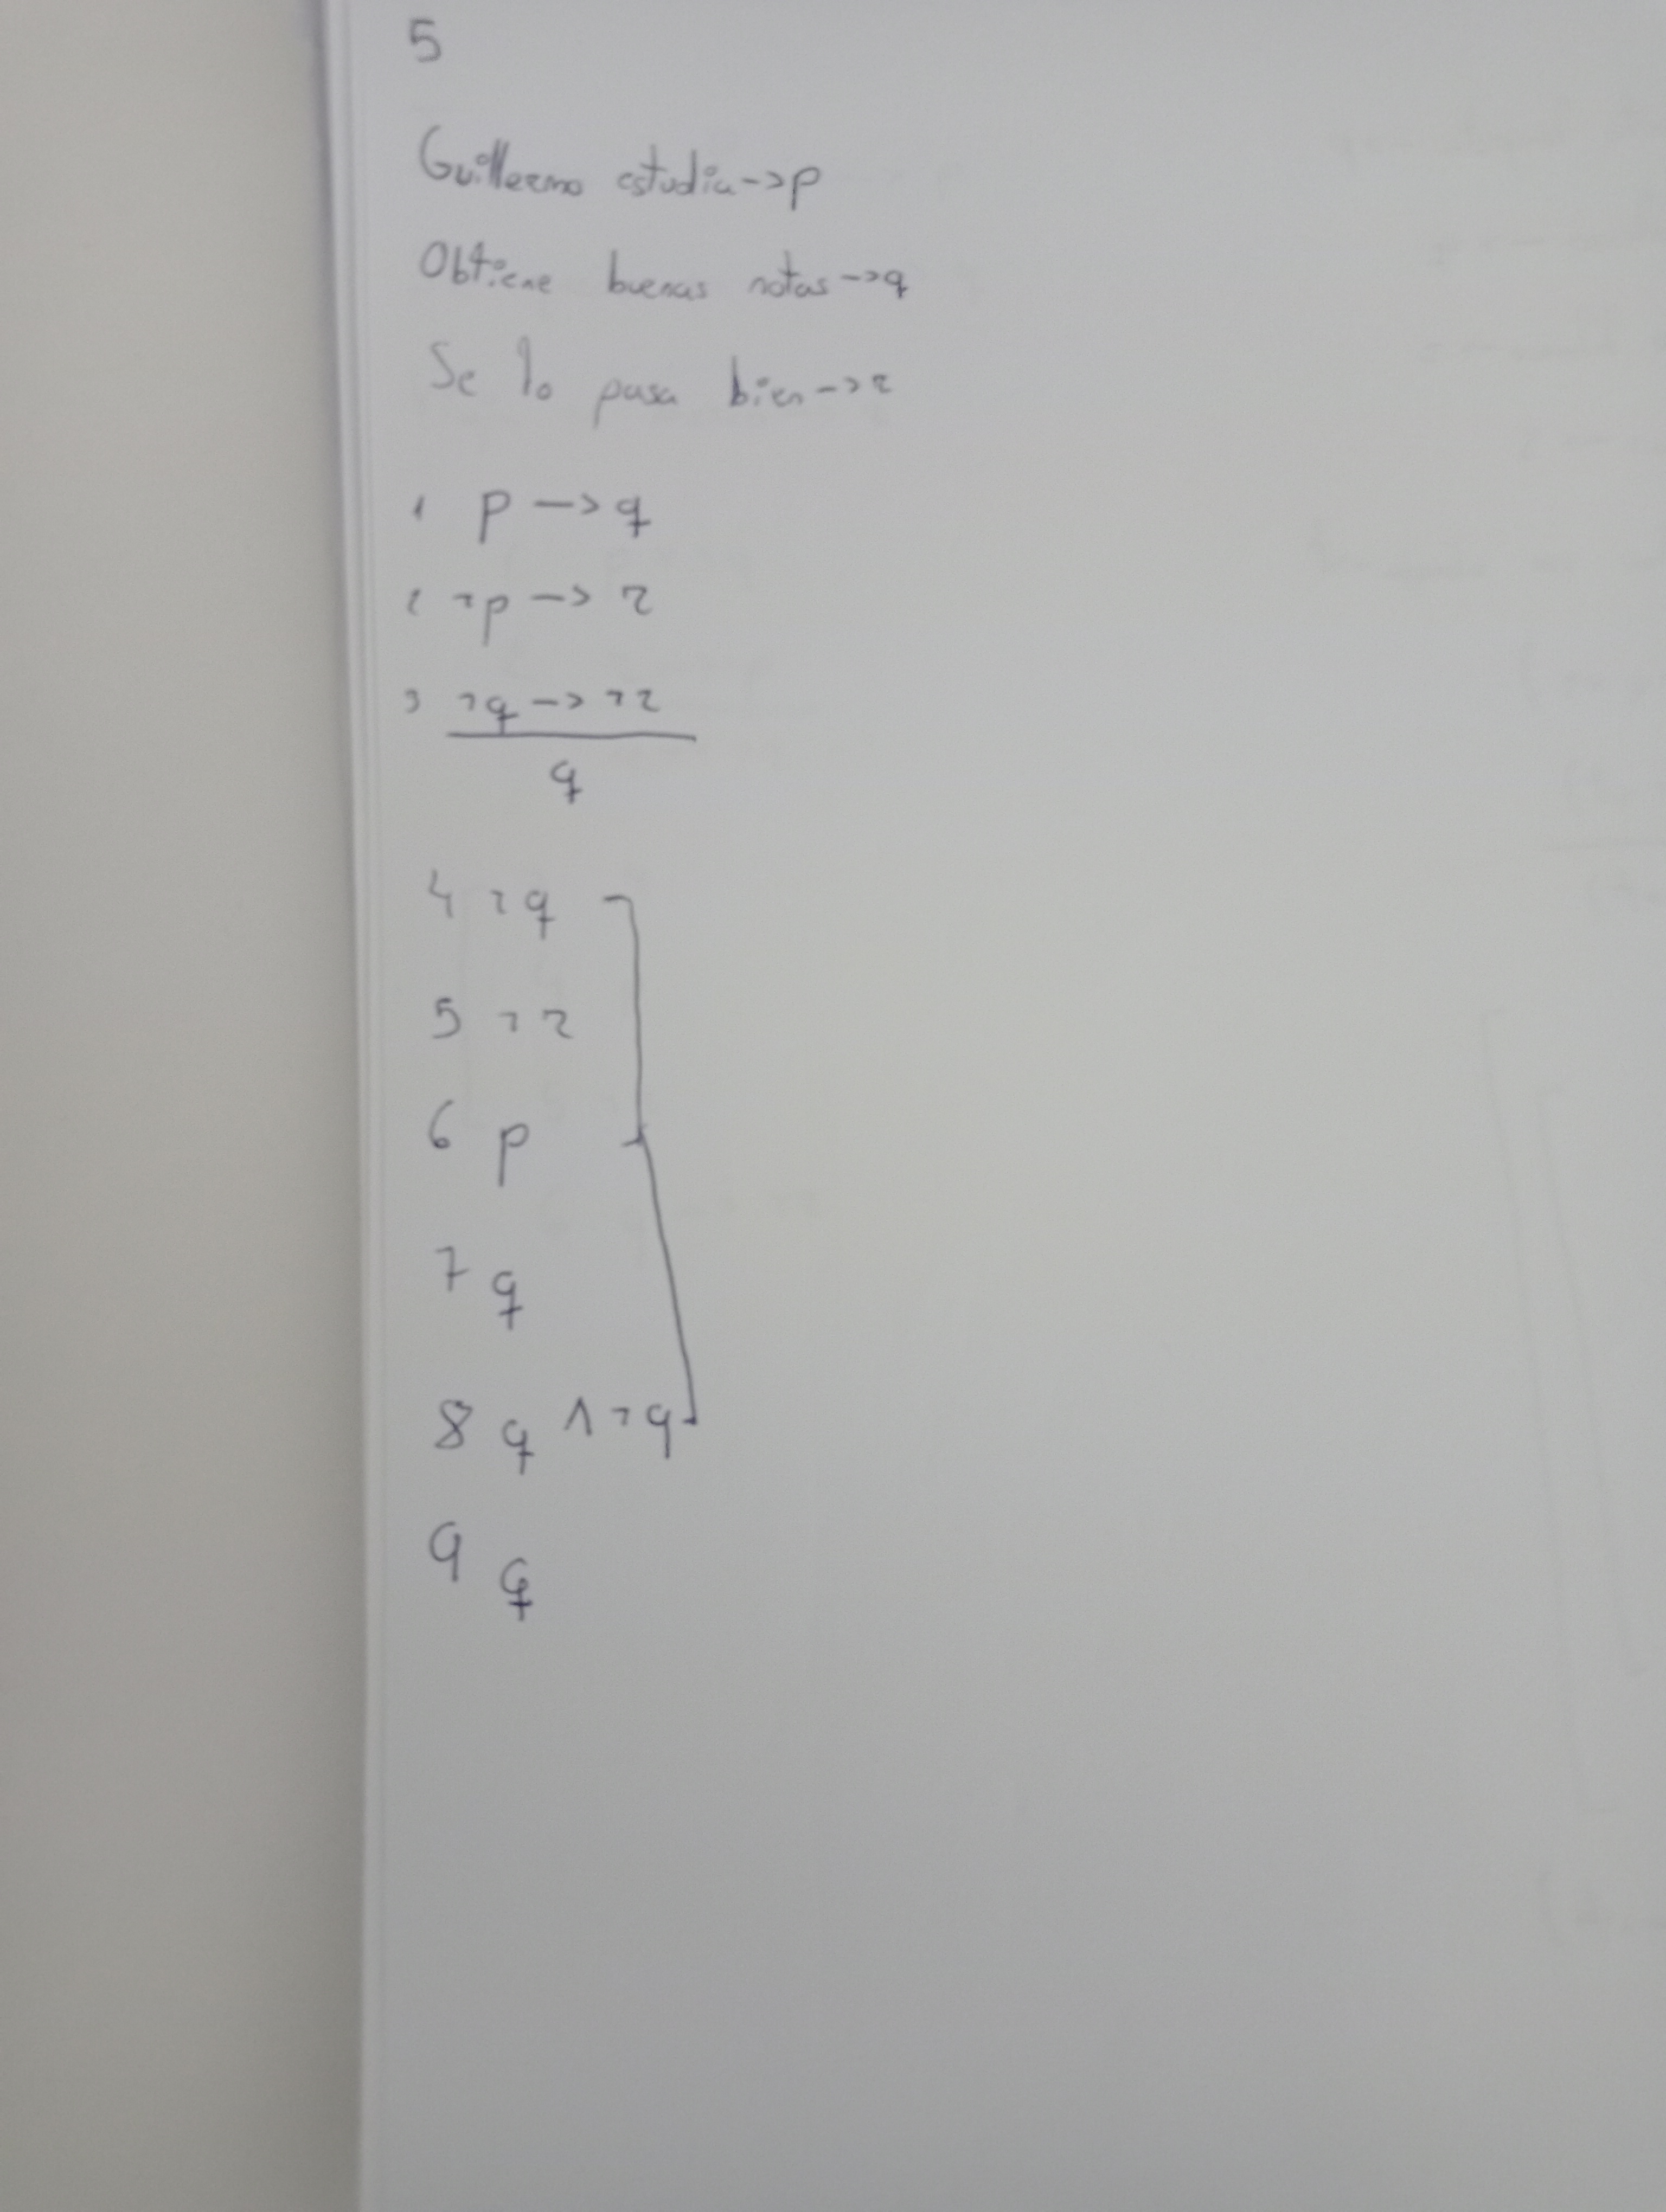 5
Guillermo estudia->p
Obtiene buenas notas->q
Se lo pasa bien->r
1 p->q
2 ¬p->r
3 ¬q->¬r
q
4 ¬q
5 ¬r
6 p
7 q
8 q ∧ ¬q
9 q